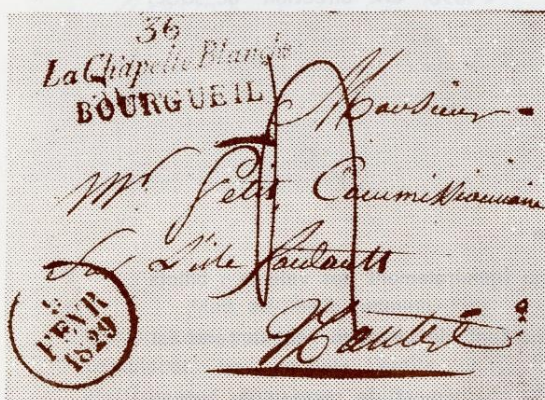 36
La Chapelle Blanche
BOURGUEIL
Monsieur
Mr Petit, Commissionnaire
Sur L'isle
Nantes
FEVR
1829